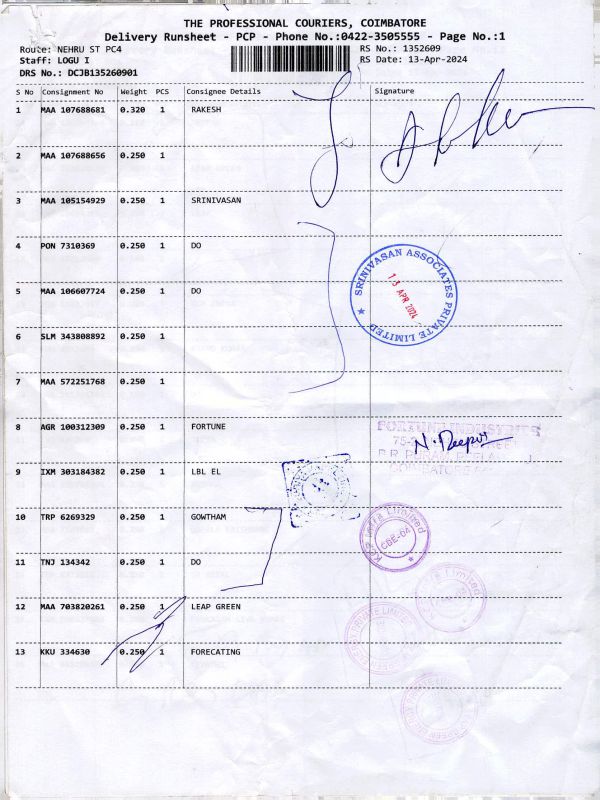 THE PROFESSIONAL COURIERS, COIMBATORE
Delivery Runsheet - PCP - Phone No.:0422-3505555 - Page No.:1
Route: NEHRU ST PC4 RS No.: 1352609
Staff: LOGU I RS Date: 13-Apr-2024
DRS No.: DCJB135260901
S No Consignment No Weight PCS Consignee Details Signature
1 MAA 107688681 0.320 1 RAKESH
2 MAA 107688656 0.250 1
3 MAA 105154929 0.250 1 SRINIVASAN
4 PON 7310369 0.250 1 DO
5 MAA 106607724 0.250 1 DO
SRINIVASAN ASSOCIATES PRIVATE LIMITED
13 APR 2024
6 SLM 343808892 0.250 1
7 MAA 572251768 0.250 1
8 AGR 100312309 0.250 1 FORTUNE
FORTUNE INDUSTRIES
N. Deepa
9 IXM 303184382 0.250 1 LBL EL
10 TRP 6269329 0.250 1 GOWTHAM
Infra Limited
CBE-04
11 TNJ 134342 0.250 1 DO
12 MAA 703820261 0.250 1 LEAP GREEN
13 KKU 334630 0.250 1 FORECATING